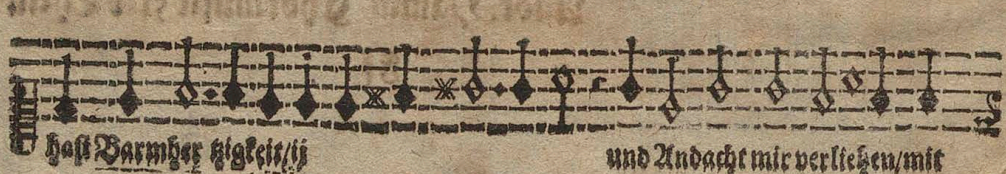 hast Barmher tzigkeit/ij und Andacht mir verliehen/mit